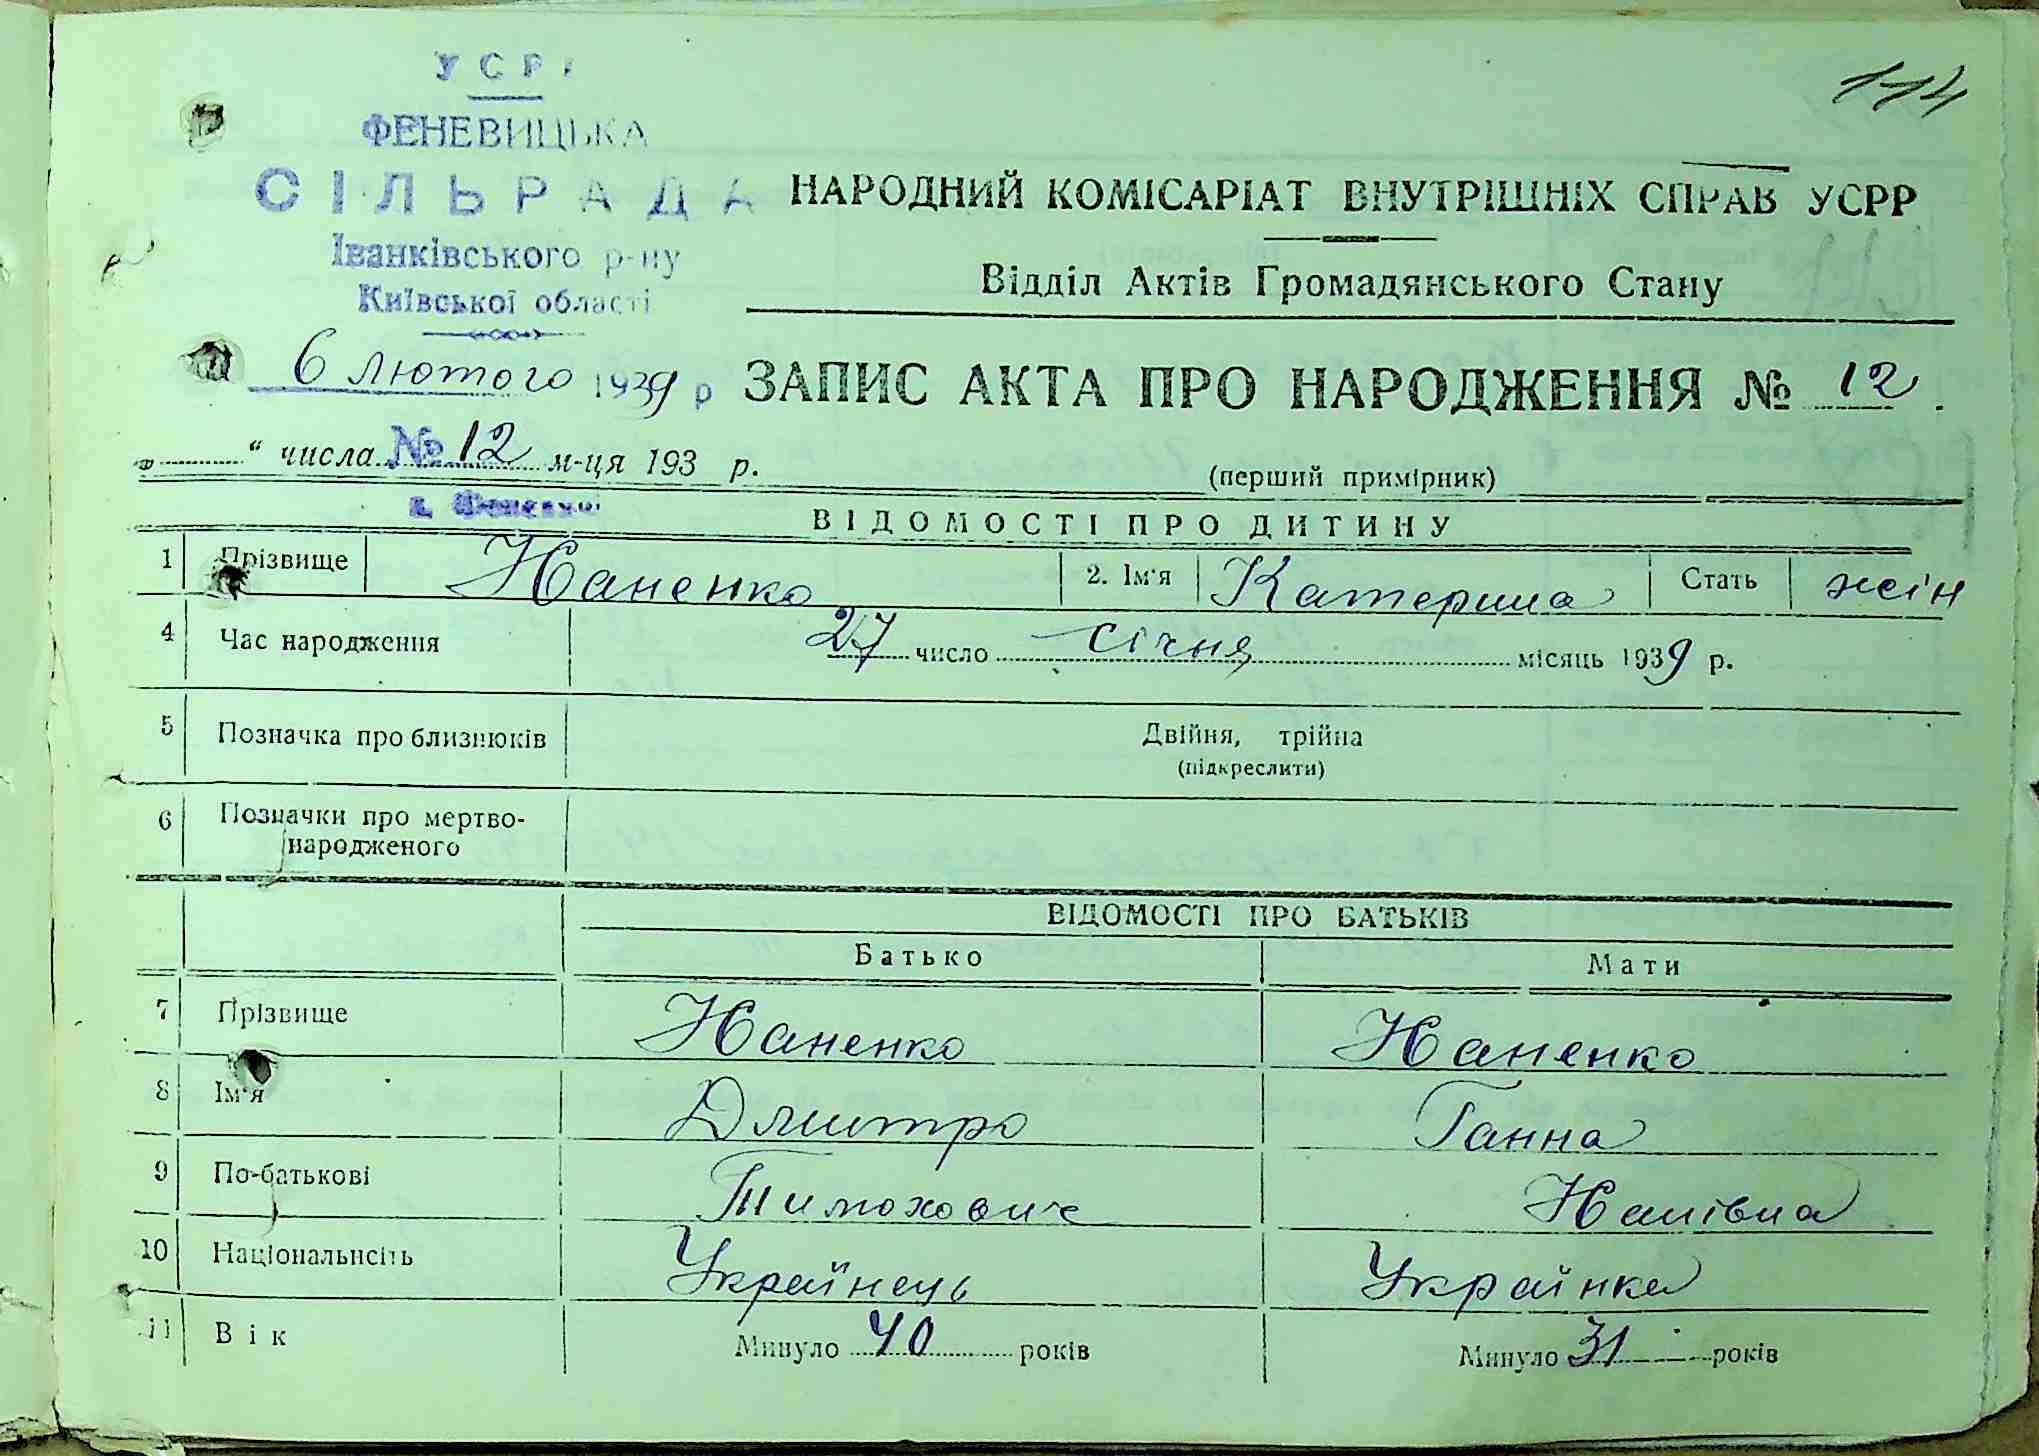 114
УСРР
ФЕНЕВИЦЬКА
СІЛЬРАДА
Іванківського р-ну
Київської області
НАРОДНИЙ КОМІСАРІАТ ВНУТРІШНІХ СПРАВ УСРР
Відділ Актів Громадянського Стану
6 лютого 1939 р
ЗАПИС АКТА ПРО НАРОДЖЕННЯ № 12.
„ “ числа № 12 м-ця 193 р.
(перший примірник)
ВІДОМОСТІ ПРО ДИТИНУ
1 Прізвище Наненко 2. Ім'я Катерина Стать жін
4 Час народження 27 число січня місяць 1939 р.
5 Позначка про близнюків Двійня, трійна
(підкреслити)
6 Позначки про мертво-
народженого
ВІДОМОСТІ ПРО БАТЬКІВ
Батько Мати
7 Прізвище Наненко Наненко
8 Ім'я Дмитро Ганна
9 По-батькові Тимохович
10 Національність Українець Українка
11 Вік Минуло 40 років Минуло 31 років